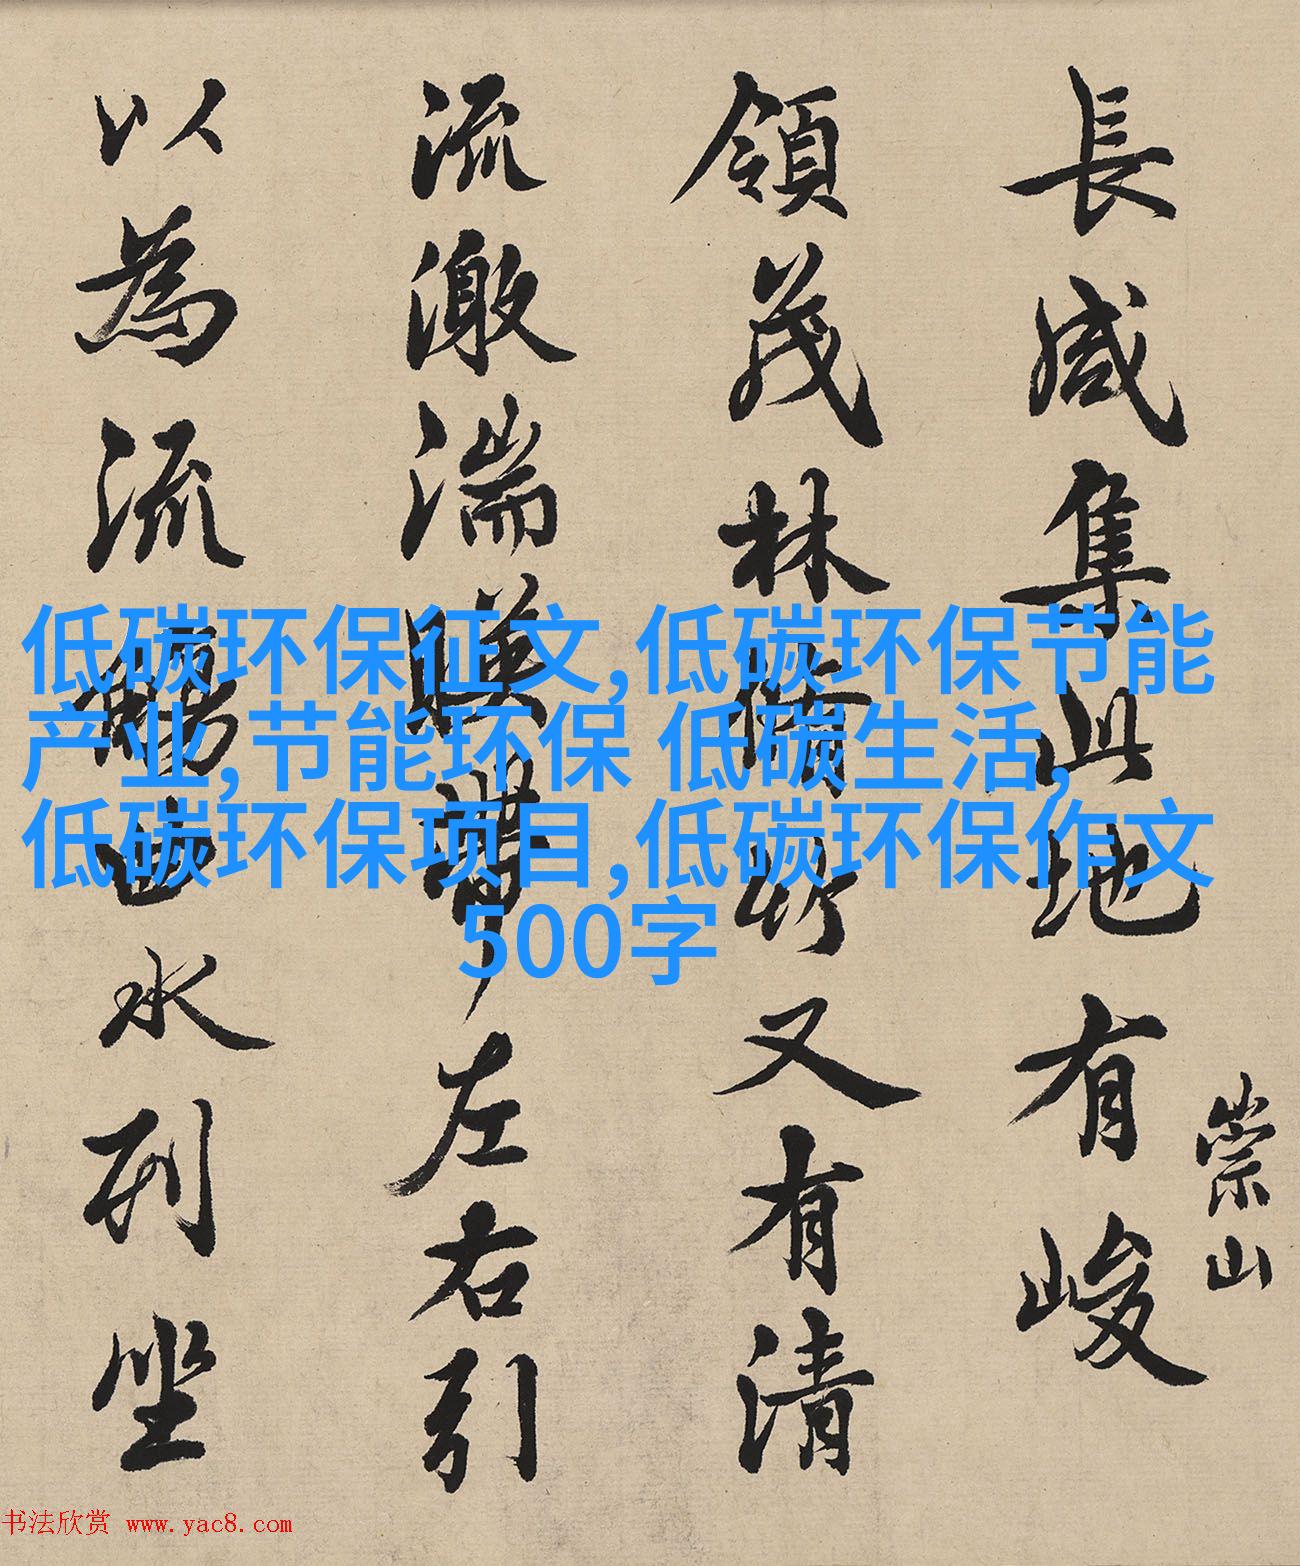 長咸集此地有峻
崇山
領茂林脩竹又有清
流激湍暎帶左右引
以為流觴曲水列坐
低碳环保征文,低碳环保节能
产业,节能环保 低碳生活,
低碳环保项目,低碳环保作文
500字
书法欣赏 www.yac8.com